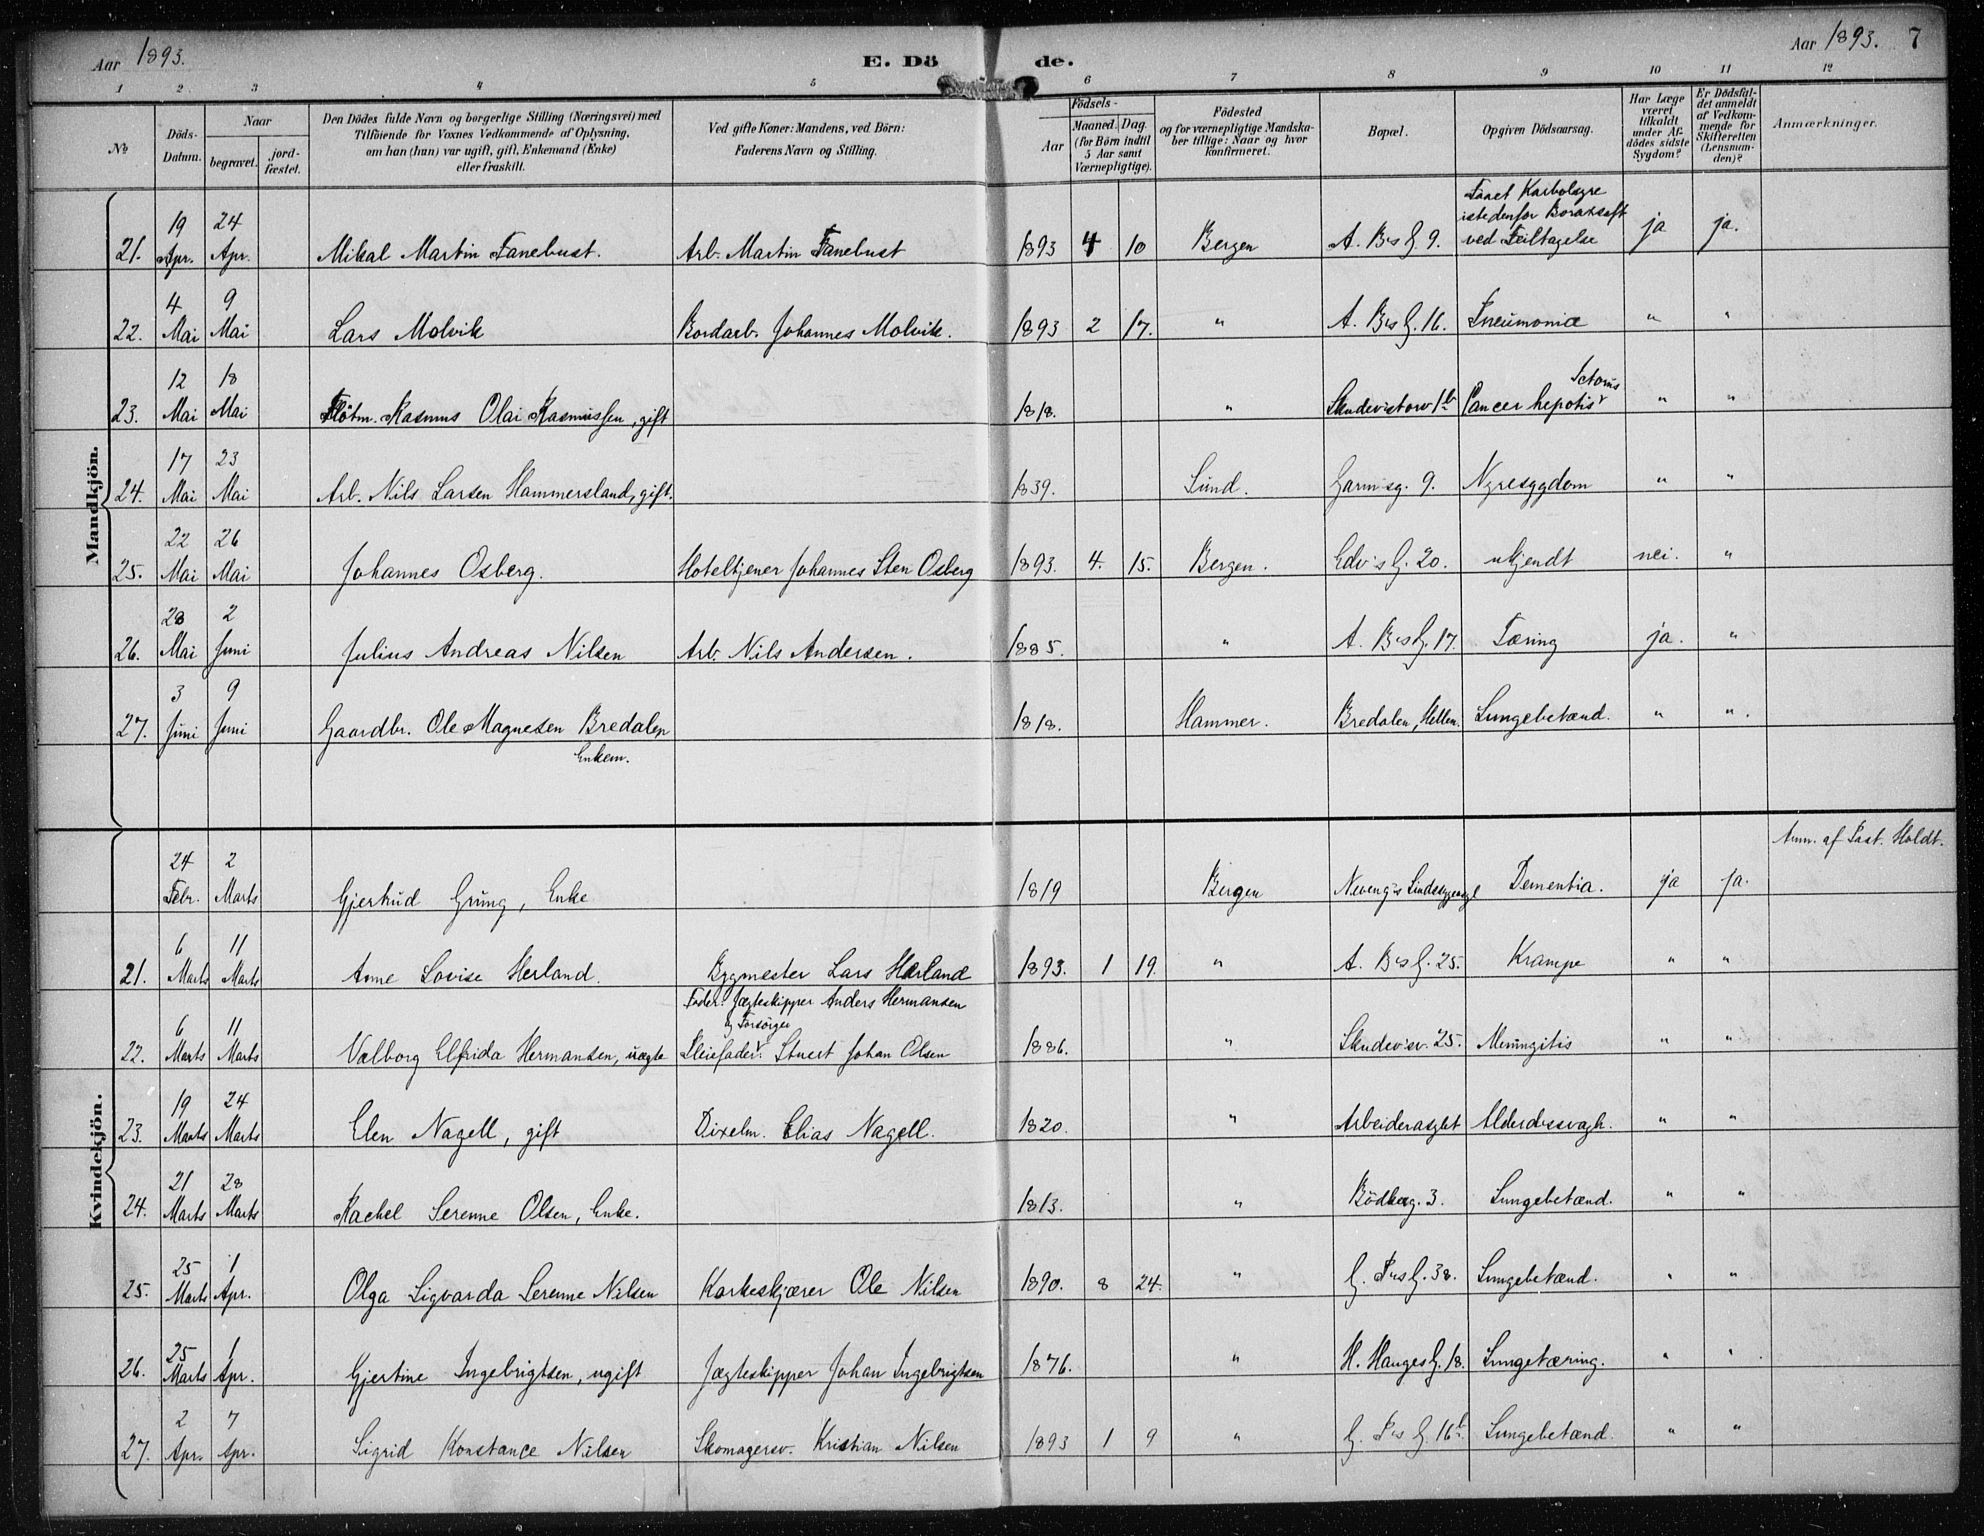 Aar 1893.
E. Dö de.
Aar 1893. 7
1 2 3 4 5 6 7 8 9 10 11 12
No
Döds-Datum.
Naar
begravet.
jord-fæstet.
Den Dödes fulde Navn og borgerlige Stilling (Næringsvei) med
Tilföiende for Voxnes Vedkommende af Oplysning,
om han (hun) var ugift, gift, Enkemand (Enke)
eller fraskilt.
Ved gifte Koner: Mandens, ved Börn:
Faderens Navn og Stilling.
Födsels-
Aar
Maaned. Dag.
(for Börn indtil
5 Aar samt
Værnepligtige).
Födested
og for værnepligtige Mandska-
ber tillige: Naar og hvor
konfirmeret.
Bopæl.
Opgiven Dödsaarsag.
Har Læge
været
tilkaldt
under Af-
dödes sidste
Sygdom?
Er Dödsfal-
det anmeldt
af Vedkom-
mende for
Skifteretten
(Lensman-
den)?
Anmærkninger.
Mandkjön.
21. 19 Apr. 24 Apr. Mikal Martin Fanebust. Arb. Martin Fanebust 1893 4 10 Bergen A. Bs G. 9. Faaet Karbolsyre istedenfor Boraxsaft ved Feiltagelse ja ja.
22. 4 Mai 9 Mai Lars Molvik Bordarb. Johannes Molvik. 1893 2 17. " A. Bs G. 16. Pneumonia " "
23. 12 Mai 18 Mai Flötm. Rasmus Olai Rasmussen, gift 1818. " Skudevistorv 1b Cancer hepatis " "
24. 17 Mai 23 Mai Arb. Nils Larsen Hammersland, gift. 1839. Sund. Garmsg. 9. Nyresygdom " "
25. 22 Mai 26 Mai Johannes Osberg. Hoteltjener Johannes Sten Osberg 1893. 4. 15. Bergen. Edv's G. 20. ukjendt nei. "
26. 28 Mai 2 Juni Julius Andreas Nilsen Arb. Nils Andersen. 1885. " A. Bs G. 17. Tæring ja. "
27. 3 Juni 9 Juni Gaardbr. Ole Magnesen Bredalen Enkem. 1818. Hammer. Bredalen, Hellen. Lungebetænd. " ".
Kvindekjön.
24 Febr. 2 Marts Gjertrud Grung, Enke 1819 Bergen Dementia. ja ja. Anm. af Past. Holdt.
21. 6 Marts 11 Marts Anne Lovise Herland. Bygmester Lars Hærland 1893. 1 19. " A. Bs G. 25. Krampe " "
22. 6 Marts 11 Marts Valborg Elfrida Hermansen, uægte Fader: Jægteskipper Anders Hermansen
Pleiefader og Forsörger: Stuert Johan Olsen 1886. " Skudev'sv. 25. Meningitis " "
23. 19 Marts 24 Marts Elen Nagell, gift Dixelm. Elias Nagell. 1820. " Arbeiderasylet Alderdssvagh. " "
24. 21 Marts 28 Marts Rachel Serenne Olsen, Enke. 1813. " Bödkerg. 3. Lungebetænd. " "
25. 25 Marts 1 Apr. Olga Sigvarda Serenne Nilsen Korkeskjærer Ole Nilsen 1890. 8 24. " G. Ps G. 38. Lungebetænd. " "
26. 25 Marts 1 Apr. Gjertine Ingebrigtsen, ugift Jægteskipper Johan Ingebrigtsen 1876. " H. Hauges G. 18. Lungetæring. " "
27. 2 Apr. 7 Apr. Sigrid Konstance Nilsen Skomagersv. Kristian Nilsen 1893 1 9 " G. Ps G. 16b Lungebetænd. " "